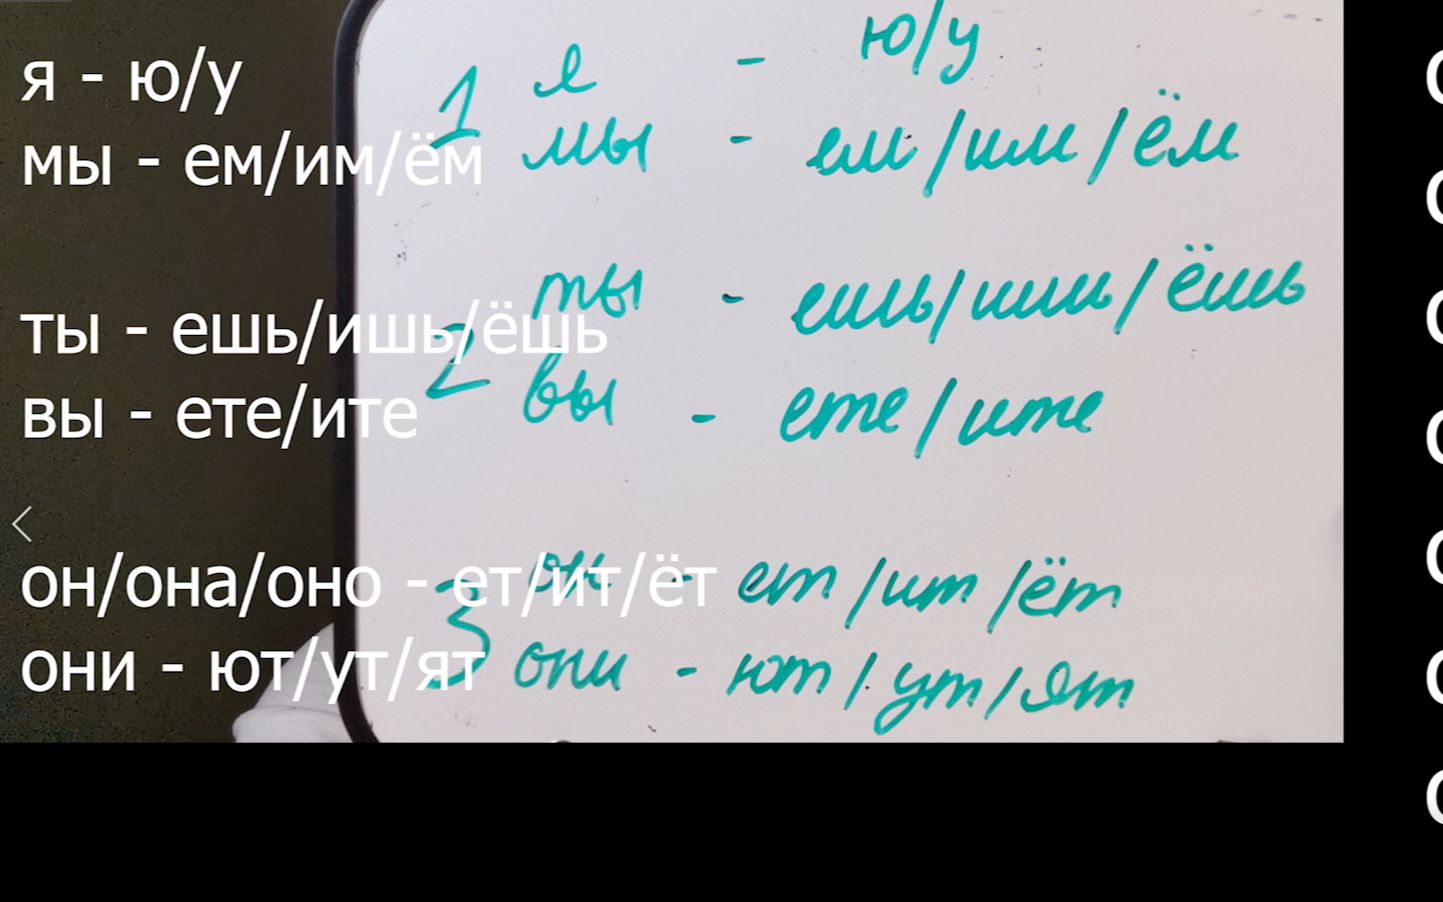 я - ю/у
мы - ем/им/ём
ты - ешь/ишь/ёшь
вы - ете/ите
он/она/оно - ет/ит/ёт
они - ют/ут/ят
1 я - ю/у
мы - ем/им/ём
2 ты - ешь/ишь/ёшь
вы - ете/ите
3 он - ет/ит/ёт
они - ют/ут/ят